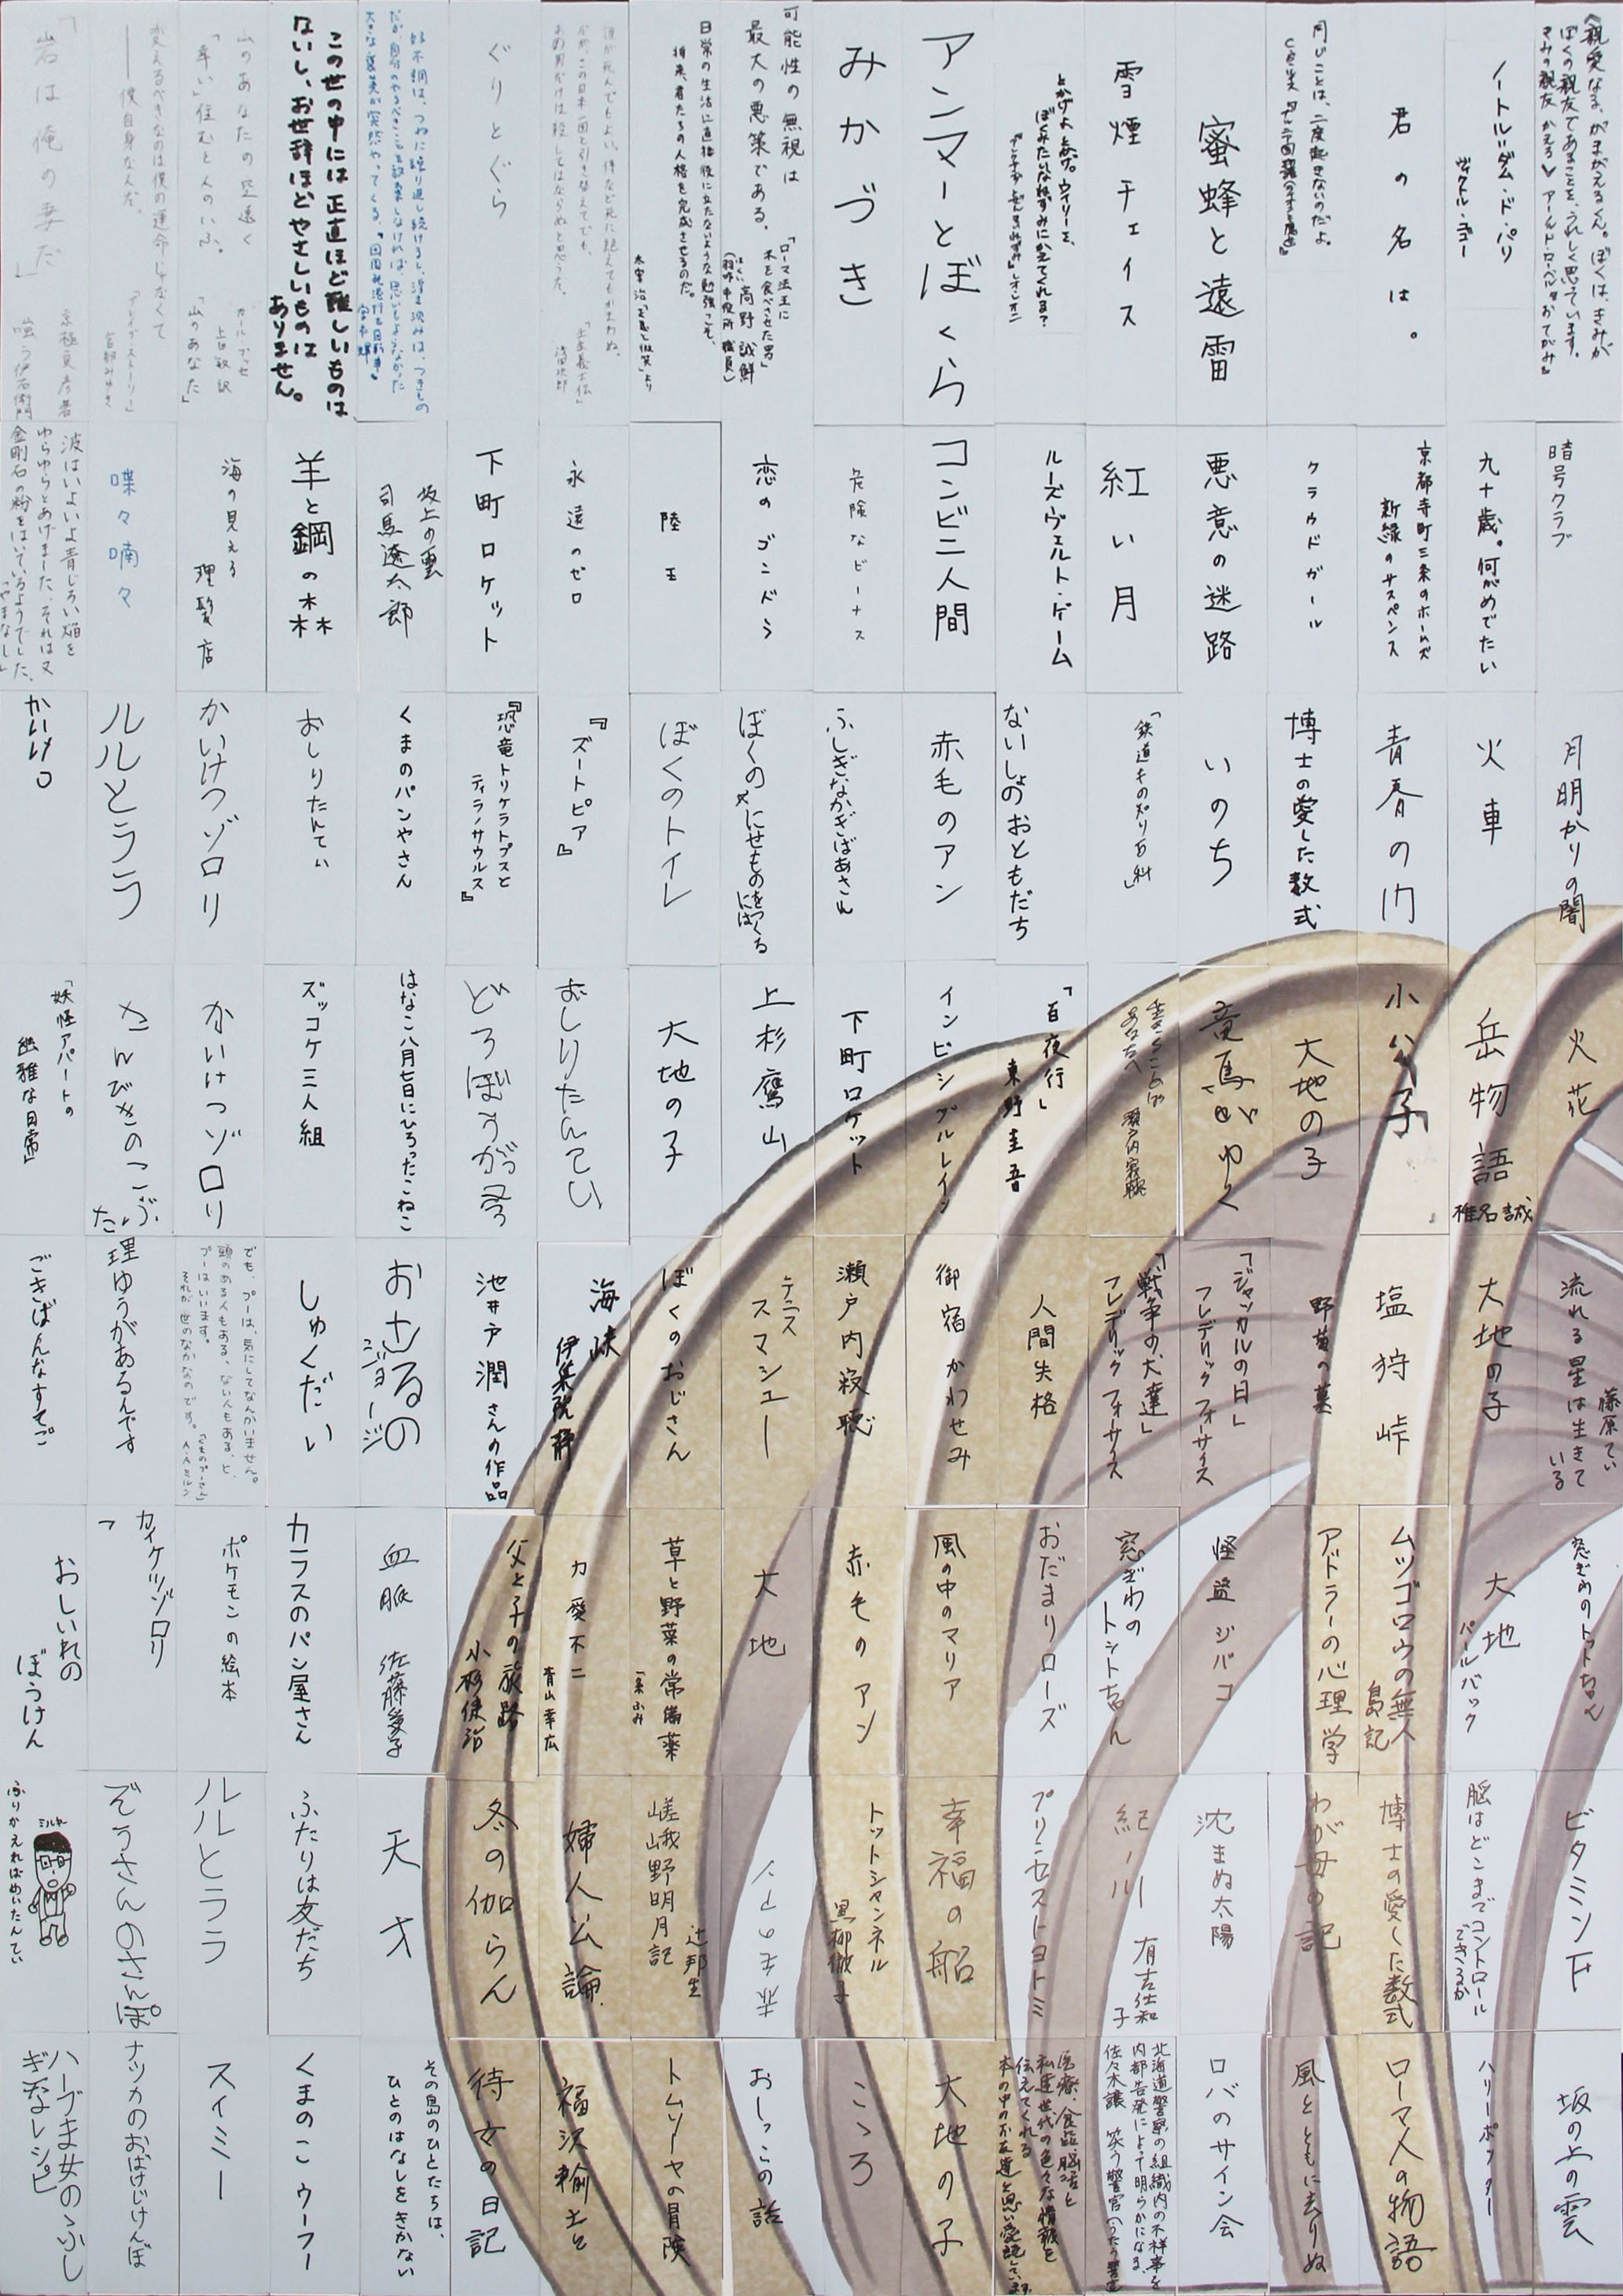 《親愛なる、がまがえるくん。ぼくは、きみが
ぼくの親友であることを、うれしく思っています。
きみの親友 かえる》 アーノルド・ローベル『おてがみ』
ノートルダム・ド・パリ
ヴィクトル・ユゴー
君の名は。
同じことは、二度起きないのだよ。
蜜蜂と遠雷
雪煙チェイス
とかげよ、とかげ。ウイリーを、
ぼくみたいなねずみにかえてくれる?
アンマーとぼくら
みかづき
可能性の無視は
最大の悪策である。
「ローマ法王に
米を食べさせた男」
高野誠鮮
(羽咋市役所 職員)
日常の生活に直接役に立たないような勉強こそ、
将来、君たちの人格を完成させるのだ。
太宰治「正義と微笑」より
誰が死んでもよい。侍など死に絶えてもかまわぬ。
だが、この日本一国と引き替えてでも、
あの男だけは殺してはならぬと思うた。
「壬生義士伝」
浅田次郎
ぐりとぐら
この世の中には正直ほど難しいものは
ないし、お世辞ほどやさしいものは
ありません。
山のあなたの空遠く
「幸い」住むと人のいふ。
カール・ブッセ
上田敏 訳
「山のあなた」
変えるべきなのは僕の運命じゃなくて
――僕自身なんだ。
「ブレイブ・ストーリー」
宮部みゆき
「岩は俺の妻だ」
京極夏彦 著
嗤う伊右衛門
暗号クラブ
九十歳。何がめでたい
京都寺町三条のホームズ
新緑のサスペンス
クラウドガール
悪意の迷路
紅い月
ルーズヴェルト・ゲーム
コンビニ人間
危険なビーナス
恋のゴンドラ
陸王
永遠のゼロ
下町ロケット
坂上の雲
司馬遼太郎
羊と鋼の森
海の見える
理髪店
喋々喃々
波はいよいよ青じろい焔を
ゆらゆらとあげました、それは又
金剛石の粉をはいているようでした。
「やまなし」
月明かりの闇
火車
青春の門
博士の愛した数式
いのち
「鉄道もの知り百科」
ないしょのおともだち
赤毛のアン
ふしぎなかぎばあさん
ぼくのにせものをつくる
には
ぼくのトイレ
『ズートピア』
『恐竜トリケラトプスと
ティラノサウルス』
くまのパンやさん
おしりたんてい
かいけつゾロリ
ルルとララ
かいけつ
火花
岳物語
椎名誠
小公子
大地の子
竜馬がゆく
瀬戸内寂聴
「百夜行」
東野圭吾
インビジブルレイン
下町ロケット
上杉鷹山
大地の子
おしりたんてい
どろぼうがっ子う
はなこ八月七日にひろったこねこ
ズッコケ三人組
かいけつゾロリ
さんびきのこぶた
「妖怪アパートの
幽雅な日常」
流れる星は生きて
いる
藤原てい
大地の子
塩狩峠
野菊の墓
「ジャッカルの日」
フレデリック フォーサイス
「戦争の犬達」
フレデリック フォーサイス
人間失格
御宿かわせみ
瀬戸内寂聴
テニス
スマシュー
ぼくのおじさん
海峡
伊集院静
池井戸潤さんの作品
おさるの
ジョージ
しゅくだい
でも、プーは、気にしてなんかいません。
頭のある人もある、ない人もある、と、
プーはいいます。
それが世のなかなのです。
「くまのプーさん」
A.A.ミルン
理ゆうがあるんです
ごきげんなすてご
窓ぎわのトットちゃん
大地
パールバック
ムツゴロウの無人
島記
アドラーの心理学
怪盗ジバコ
窓ぎわの
トットちゃん
おだまりローズ
風の中のマリア
赤毛のアン
大地
草と野菜の常備薬
一条ふみ
力愛不二
青山幸広
父と子の旅路
小杉健治
血脈 佐藤愛子
カラスのパン屋さん
ポケモンの絵本
カイケツゾロリ
おしいれの
ぼうけん
ビタミンF
脳はどこまでコントロール
できるか
博士の愛した数式
わが母の記
沈まぬ太陽
紀ノ川
有吉佐和
子
プリンセストヨトミ
幸福の船
トットチャンネル
黒柳徹子
赤毛のアン
嵯峨野明月記
辻邦生
婦人公論
冬の伽らん
天才
ふたりは友だち
ルルとララ
ぞうさんのさんぽ
ふりかえればめいたんてい
ミルキー
坂の上の雲
ハリーポッター
ローマ人の物語
風とともに去りぬ
ロバのサイン会
北海道警察の組織内の不祥事を
内部告発によって明らかになる、
佐々木譲 笑う警官
大地の子
こころ
おしっこの話
トムソーヤの冒険
福沢諭吉
侍女の日記
その島のひとたちは、
ひとのはなしをきかない
くまのこウーフー
スイミー
ナツカのおばけじけんぼ
ハーブま女のふし
ぎなレシピ